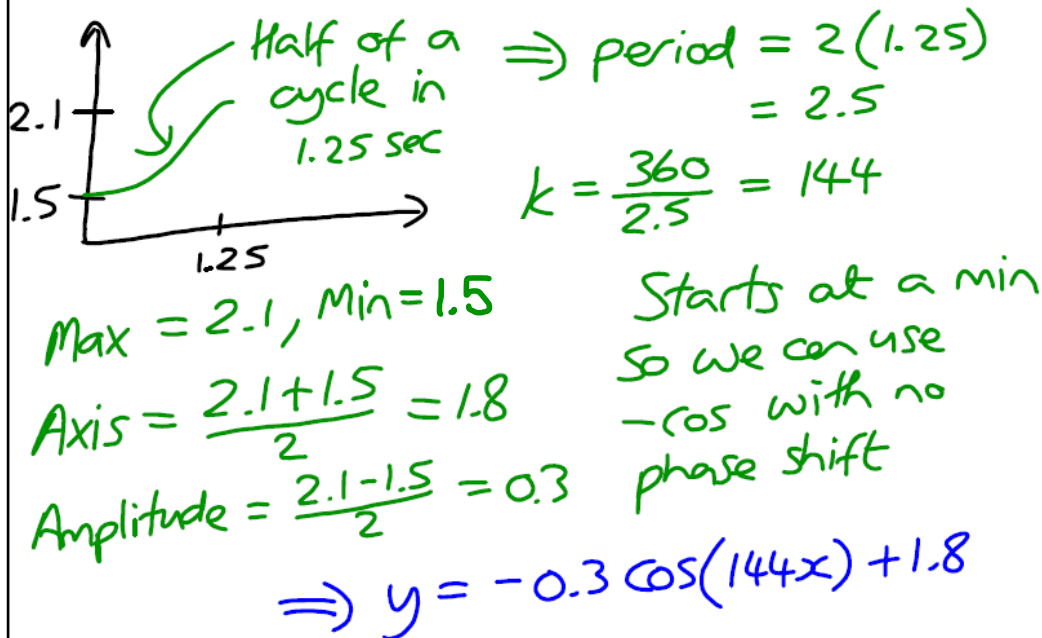 Half of a
cycle in
1.25 sec
2.1
1.5
1.25
⇒ period = 2(1.25)
= 2.5
k = 360/2.5 = 144
Max = 2.1, Min = 1.5
Axis = (2.1+1.5)/2 = 1.8
Amplitude = (2.1-1.5)/2 = 0.3
Starts at a min
so we can use
-cos with no
phase shift
⇒ y = -0.3 cos(144x) + 1.8